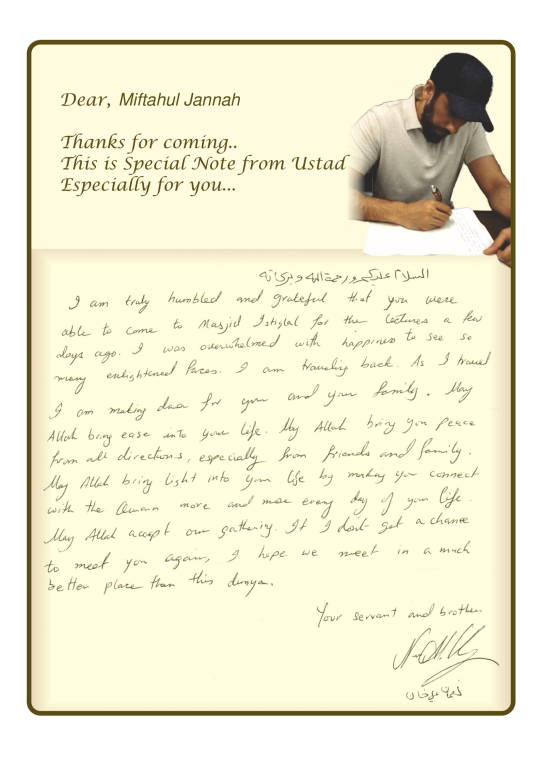 Dear, Miftahul Jannah
Thanks for coming..
This is Special Note from Ustad
Especially for you...
السلام عليكم ورحمة الله وبركاته
I am truly humbled and grateful that you were
able to come to Masjid Istiqlal for the lectures a few
days ago. I was overwhelmed with happiness to see so
many enlightened faces. I am traveling back. As I travel
I am making duaa for you and your family. May
Allah bring ease into your life. May Allah bring you peace
from all directions, especially from friends and family.
May Allah bring light into your life by making you connect
with the Quraan more and more every day of your life.
May Allah accept our gathering. If I don't get a chance
to meet you again, I hope we meet in a much
better place than this dunya.
Your servant and brother